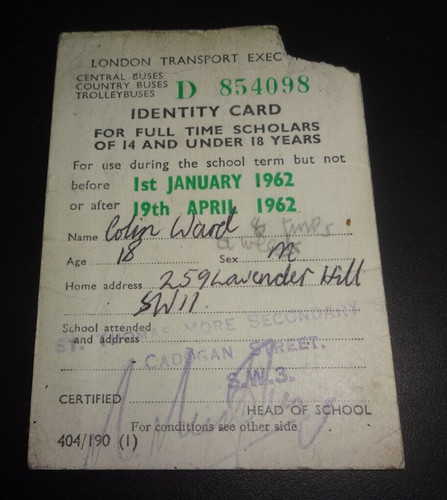 LONDON TRANSPORT EXEC
CENTRAL BUSES
COUNTRY BUSES
TROLLEYBUSES
D 854098
IDENTITY CARD
FOR FULL TIME SCHOLARS
OF 14 AND UNDER 18 YEARS
For use during the school term but not
before 1st JANUARY 1962
or after 19th APRIL 1962
Name Colin Ward
Age 18 Sex M
Home address 259 Lavender Hill
SW11.
School attended
and address
ST. THOMAS MORE SECONDARY
CADOGAN STREET,
S.W.3.
CERTIFIED
HEAD OF SCHOOL
For conditions see other side
404/190 (1)